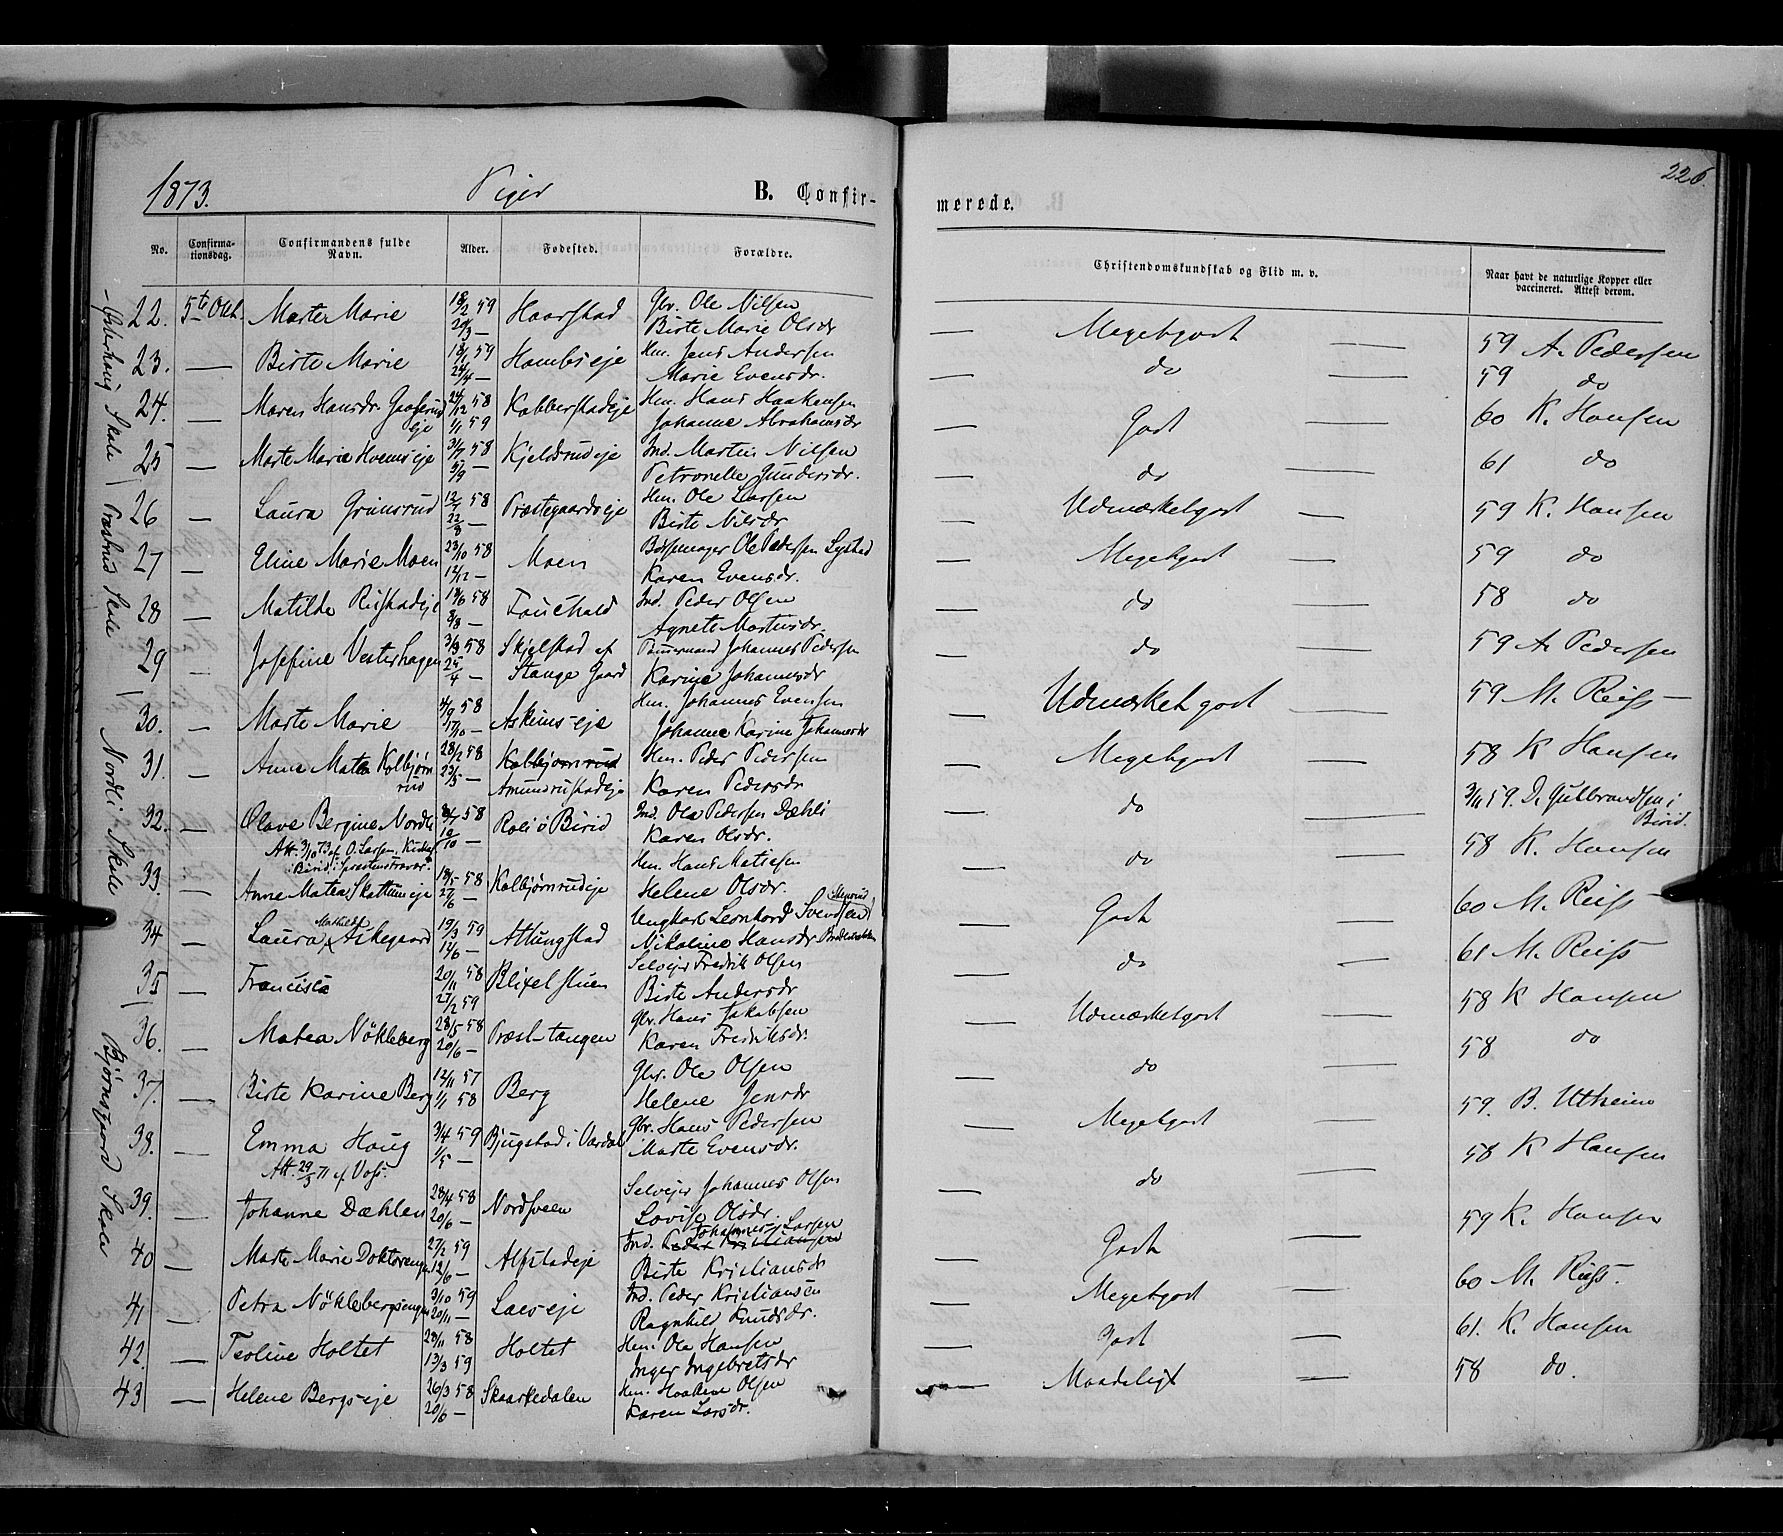 1873. Piger B. Confirmerede. 226.
No. Confirmationsdag. Confirmandens fulde Navn. Alder. Fødested. Forældre. Christendomskundskab og Flid m. v. Naar havt de naturlige Kopper eller vaccineret. Attest derom.
22. 5te Okt. Marte Marie 18/2 59 20/3 — Haarstad Gbr. Ole Nilsen Birte Marie Olsdr — Megetgodt — 59 A. Pedersen
23. — Birte Marie 18/1 59 24/4 — Hombseje Hm. Jens Andersen Marie Evensdr. — do — 59 do
24. — Maren Hansdr. Gaaserud eje 24/12 58 1/1 59 Kabberstadeje Hm. Hans Haakensen Johanne Abrahamsdr — Godt — 60 K. Hansen
25 — Marte Marie Hoemseje 31/7 58 5/9 — Kjelsrudeje Ind. Martin Nilsen Petronelle Gundersdr. — do — 61 do
26 — Laura Grimsrud 12/7 58 22/8 — Præstegaardseje Hm. Ole Larsen Birte Nilsdr — Udmærketgodt — 59 K. Hansen
27 — Eline Marie Moen 23/10 58 12/12 — Moen Bøssemager Ole Pedersen Lystad Karen Evensdr. — Megetgodt — 59 do
28 — Matilde Ristadeje 18/6 58 8/8 — Fauchald Ind. Peder Olsen Agnete Martinsdr. — do — 58 do
29 — Josefine Vesterhagen 3/3 58 25/4 — Skjelstad af Stange Gaard Tømmermand Johannes Pedersen Karine Johannesdr — do — 59 A. Pedersen
30. — Marte Marie 4/9 58 17/10 — Askims-eje Hm. Johannes Evensen Johanne Karine Johannesdr — Udmærket godt — 59 M. Reiss —
31. — Anne Matea Kolbjørnrud 28/2 58 23/5 — Kolbjørnrud Amundrustadeje Hm. Peder Pedersen Karen Pedersdr — Megetgodt — 58 K Hansen
32. — Olave Bergine Nordli 58 10/10 — i Birid Ind. Ole Pedersen Dæhli Karen Olsdr. — do — 3/11 59. D. Gulbrandsen i Birid.
Att. 3/10 73 af O. Larsen, Kirkes. Birid i Prestens fravær.
33. — Anne Matea Skattumeje 18/5 58 27/6 — Kolbjørnrudeje Hm. Hans Matisen Helene Olsdr. — do — 58 K. Hansen
34 — Laura Mathilde Askegaard 19/3 59 14/6 — Attungstad Ungkarl Leonhard Svendsen Nikoline Hansdr — Godt — 60 M. Reiss —
35 — Francisca 20/11 58 27/2 59 Blixelstuen Selvejer Fredrik Olsen Birte Andersdr — do — 61 M. Reiss
36. — Matea Nökleberg 28/5 58 20/6 — Præst-tangen Gbr. Hans Jakobsen Karen Fredriksdr. — Udmærketgodt — 58 K Hansen
37. — Birte Karine Berg 12/11 57 1/1 58 Berg Gbr. Ole Olsen Helene Jensdr — do — 58 do
38. — Emma Haug 3/4 59 1/5 — Bjugstad i Vardal Gbr. Hans Pedersen Marte Evensdr. — Megetgodt — 59. B. Utheim
Att. 29/3 71 af Voss.
39. — Johanne Dæhlen 28/4 58 20/6 — Nordsveen Selvejer Johannes Olsen Lovise Olsdr. — do — 58 K Hansen
40 — Marte Marie Doktorengen 27/2 59 12/6 — Alfstadeje Ind. Peder Kristiansen Johannes Larsen Birte Kristiansdr — Godt — 59 K. Hansen
41 — Petra Nöklebergsengen 3/10 59 20/11 — Laeseje Ind. Peder Kristiansen Ragnhil Knudsdr. — Megetgodt — 60 M. Reiss.
42. — Teoline Holtet 28/11 58 13/3 59 Holtet Hm. Ole Hansen Inger Ingebretsdr — Godt — 61. K. Hansen
43 — Helene Bergseje 26/3 58 20/6 — Skaarkedalen Hm. Haaken Olsen Karen Larsdr. — Maadeligt — 58 do.
Østerhaug Skole / Præstrud Skole / Nordli Skole / Bjørnsgaard Skole